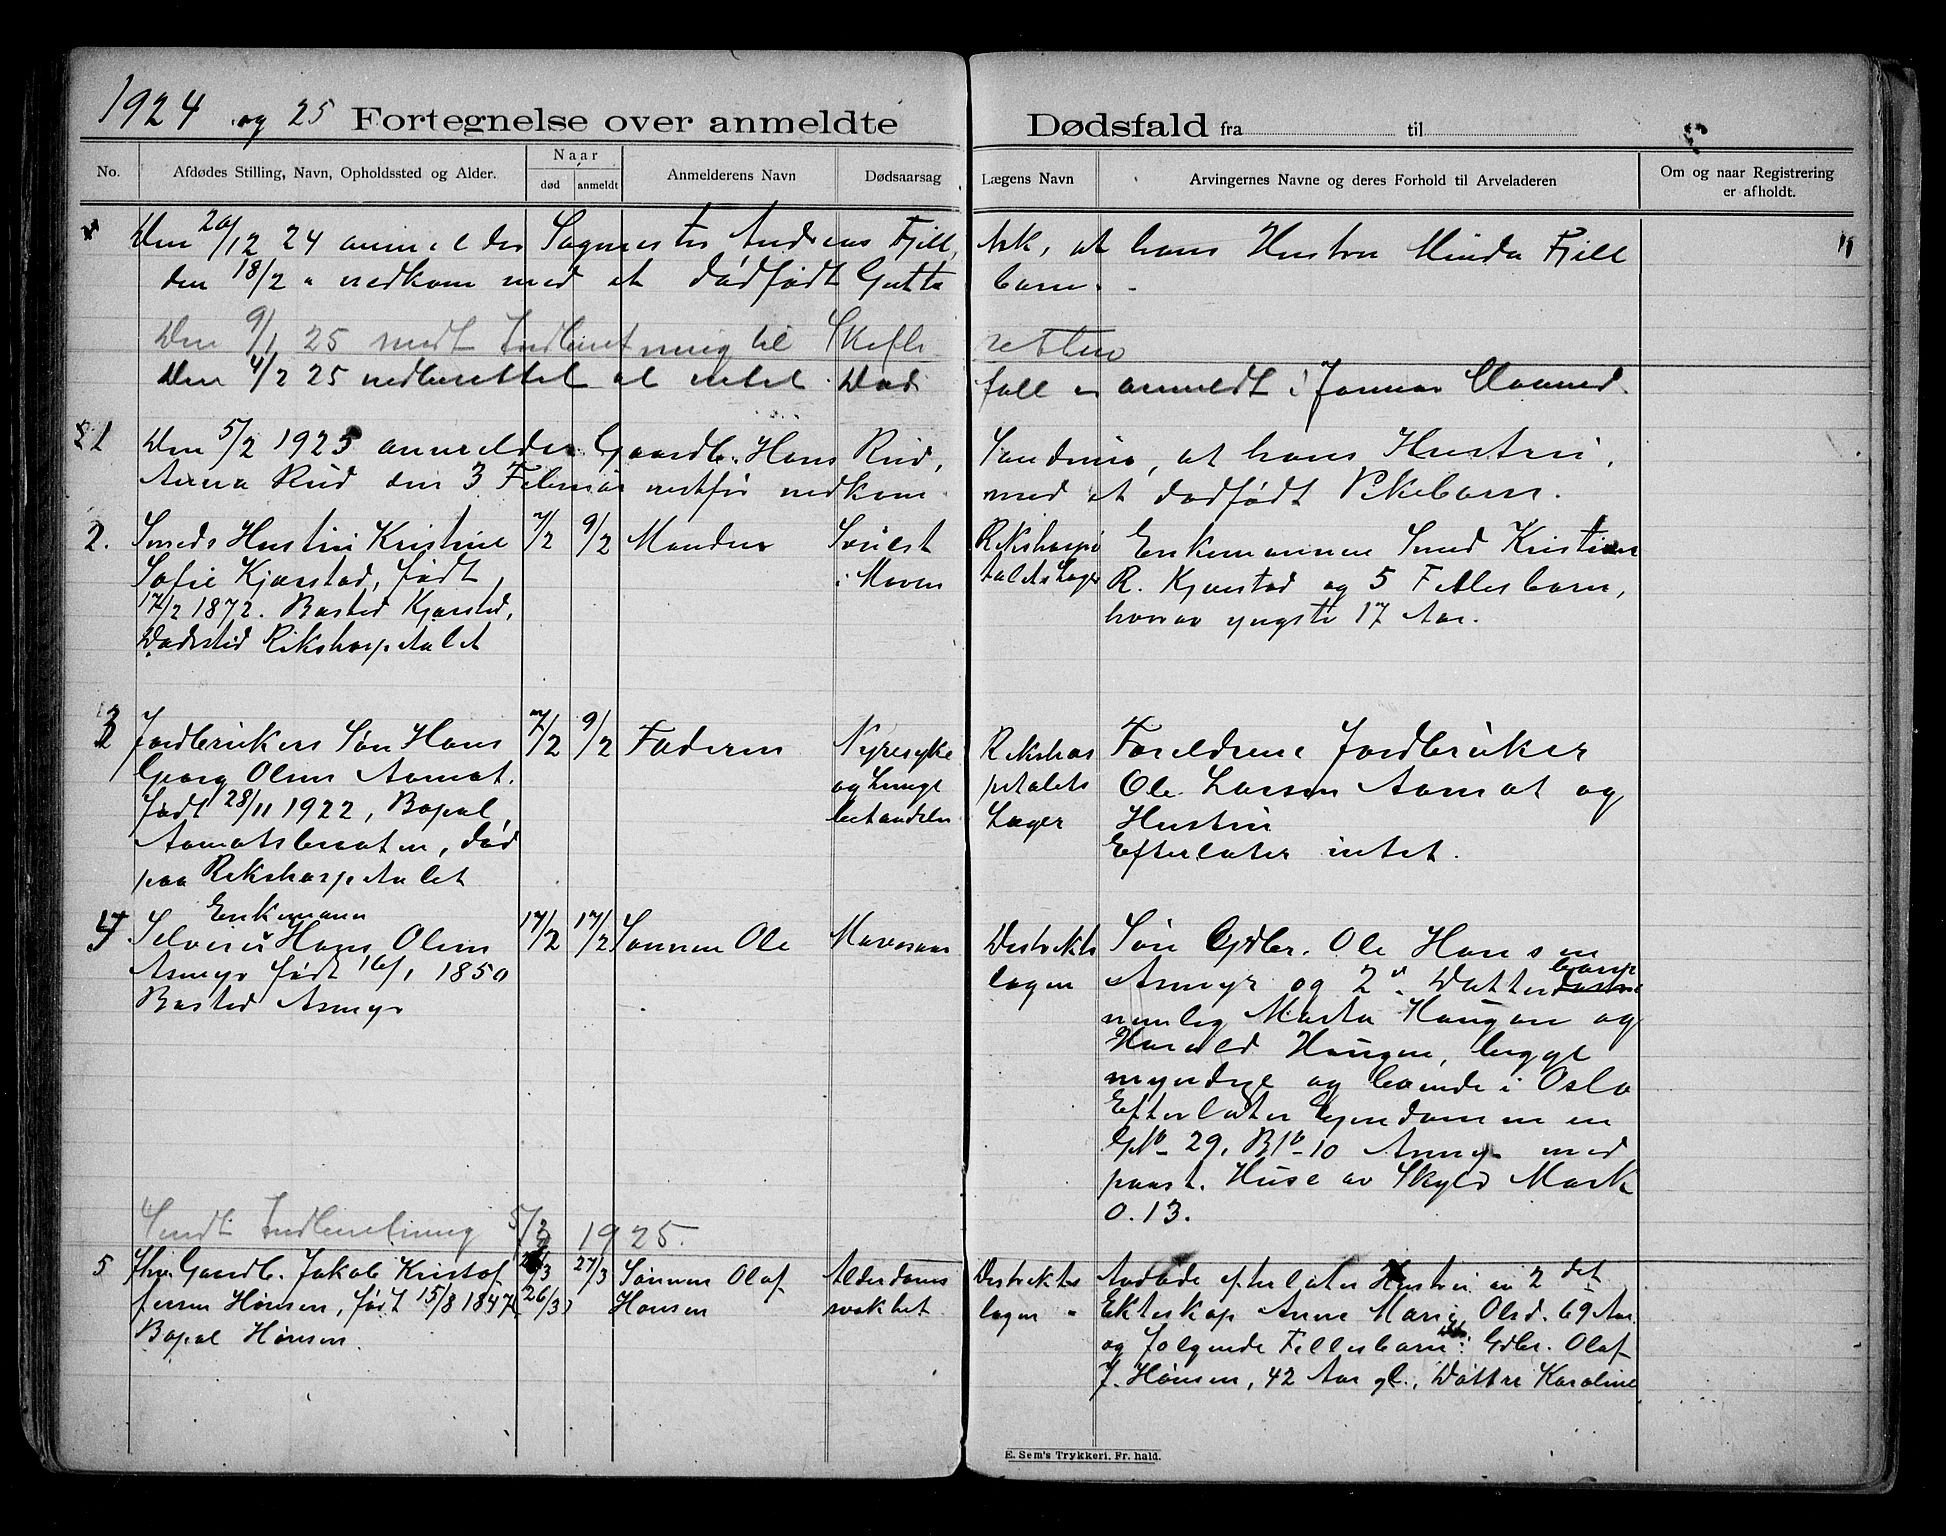 1924 og 25 Fortegnelse over anmeldte Dødsfald fra til
No. Afdødes Stilling, Navn, Opholdssted og Alder. Naar død anmeldt Anmelderens Navn Dødsaarsag Lægens Navn Arvingernes Navne og deres Forhold til Arveladeren Om og naar Registrering er afholdt.
Den 20/12 24 anmelder Andreas Fjell, at hans Hustru Minda Fjell
den 18/2 " nedkom med et dødfødt Gutte barn.
Den 9/1 25 sendt Indberetning til Skifte retten
Den 4/2 25 nedberettet at intet Døds fall er anmeldt i Januar Maaned.
1 Den 5/2 1925 anmelder Gaardb. Hans Rud, at hans Hustru,
Anna Rud den 3 Februar nedkom med et dødfødt Pikebarn.
2.
Smeds Hustru Kristine
Sofie Kjærstad, født
17/2 1872. Bosted Kjærstad,
Dødssted Rikshospetalet
7/2
9/2
Manden
i Maven
Rikshospi
talets Læge
Enkemannen Smed Kristian
R. Kjærstad og 5 Fellesbarn,
hvorav yngste 17 Aar.
3
Jordbrukers Søn Hans
Georg Olsen Aamot.
født 28/11 1922, Bopæl,
Aamotsbraaten, død
paa Rikshospetalet
7/2
9/2
Faderen
Nyresyke
og Lunge
betændelse
Rikshos
petalets
Læger
Foreldrene Jordbruker
Ole Larsen Aamot og
Hustru
Efterlater intet.
4
Enkemann
Selveier Hans Olsen
Asmyr født 16/1 1850
Bosted Asmyr
17/2
17/2
Sønnen Ole
Mavesaar
Destrikts
lægen
Søn Gdbr. Ole Hansen
Asmyr og 2 Datterbarn
nemlig Marta Haugen og
Harald Haugen, begge
myndige og boende i Oslo
Efterlater Eyendommen
Gno 29, Bno 10 Asmyr med
paast. Huse av Skyld Mark
0.13.
Sendt Indberetning 5/3 1925.
5
fhv. Gaardb. Jakob Kristof
fersen Hønsen, født 15/8 1847
Bopæl Hønsen.
26/3
27/3
Sønnen Olaf
Hønsen
Alderdoms
svakhet
Destrikts
lægen
Avdøde efterlater Hustru av 2 det
Ekteskap Anne Marie Olsd. 69 Aar
og følgende Fellesbarn: Gdbr. Olaf
J. Hønsen, 42 Aar gl., Datter Karoline
E. Sem's Trykkeri. Fr.hald.